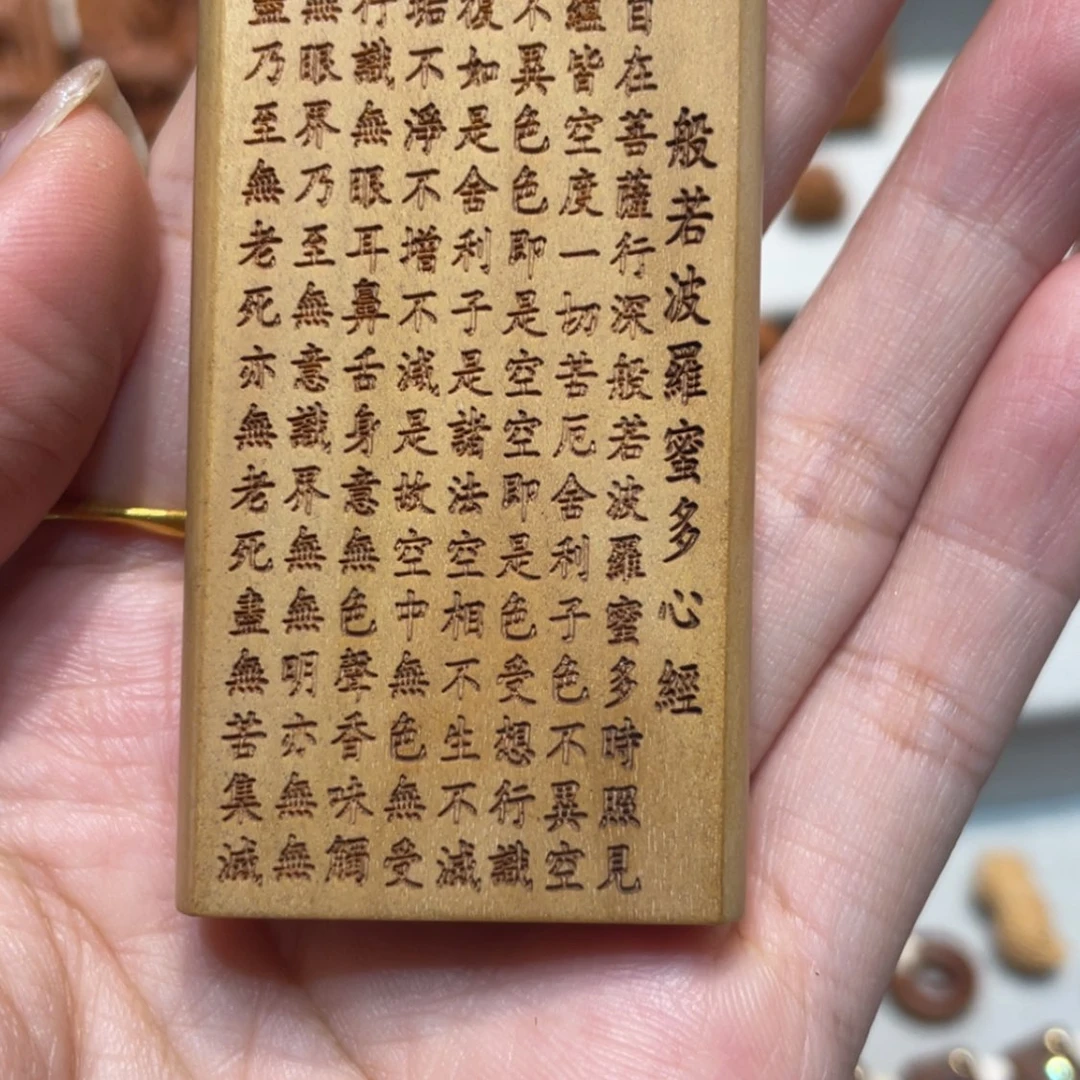 般若波羅蜜多心經
自在菩薩行深般若波羅蜜多時照見
蘊皆空度一切苦厄舍利子色不異空
不異色色即是空空即是色受想行識
復如是舍利子是諸法空相不生不滅
垢不淨不增不減是故空中無色無受
行識無眼耳鼻舌身意無色聲香味觸
無眼界乃至無意識界無無明亦無無
盡乃至無老死亦無老死盡無苦集滅